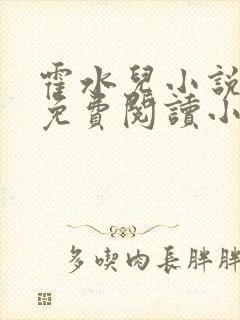 霍水兒小說
免費閱讀小
多喫肉長胖胖